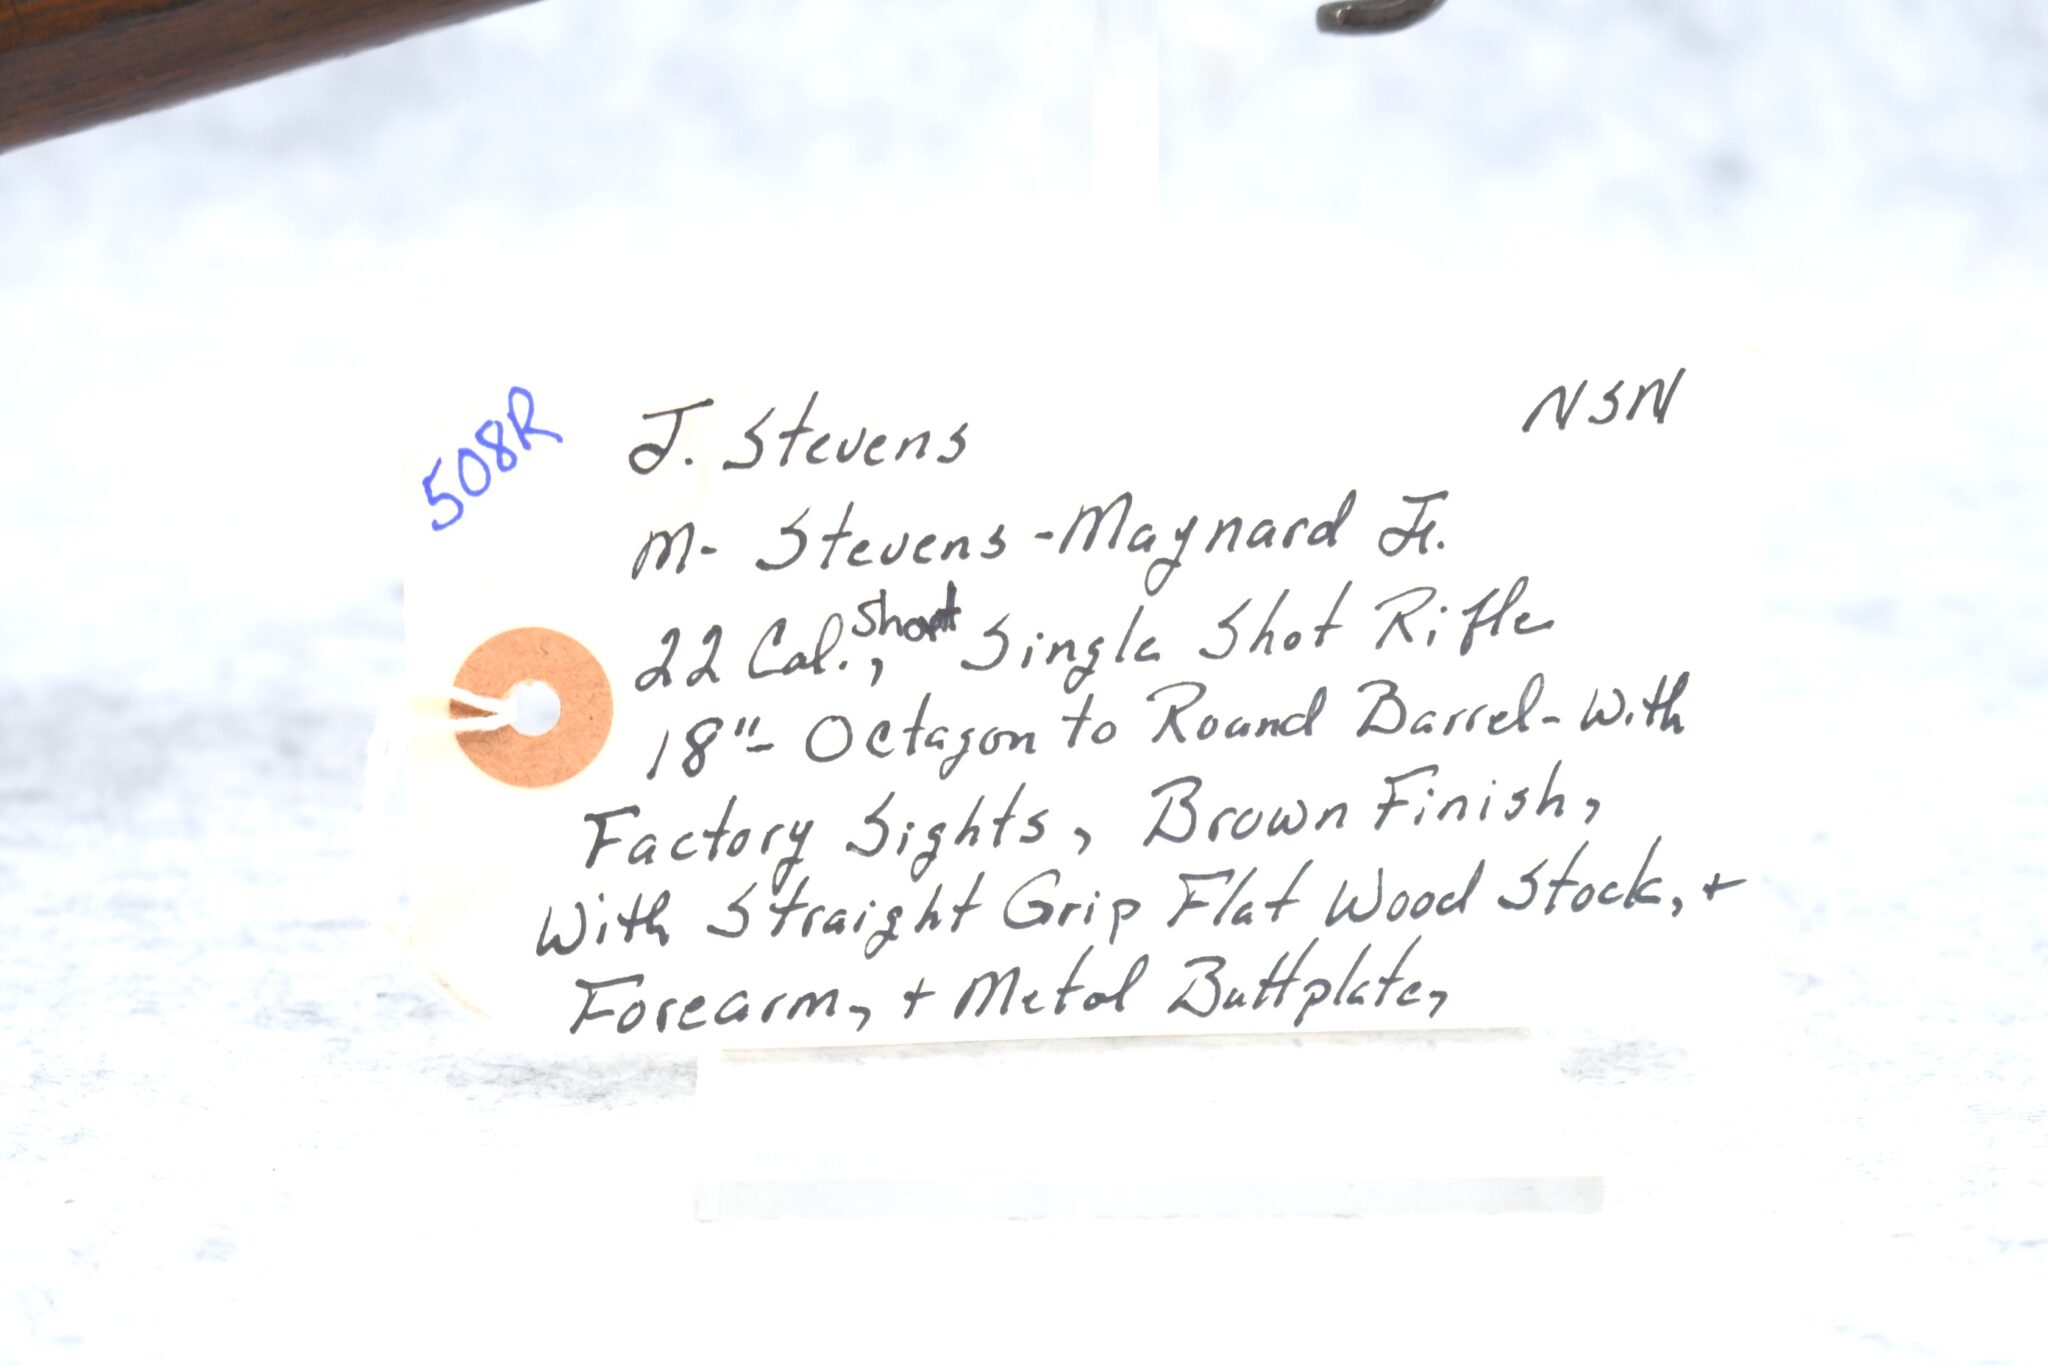 508R
J. Stevens NSN
M- Stevens-Maynard Jr.
22 Cal., Short Single Shot Rifle
18"- Octagon to Round Barrel- With
Factory Sights, Brown Finish,
With Straight Grip Flat Wood Stock, +
Forearm, + Metal Buttplate,